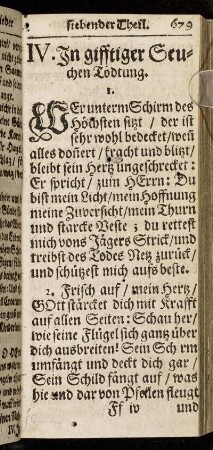 siebender Theil. 679
IV. In gifftiger Seu-
chen Tödtung.
1.
WEr unterm Schirm des
Höchsten sitzt / der ist
sehr wohl bedecket/ weñ
alles doñert / kracht und blitzt/
bleibt sein Hertz ungeschrecket:
Er spricht/ zum HErrn: Du
bist mein Licht/ mein Hoffnung
meine Zuversicht/ mein Thurn
und starcke Veste ; du rettest
mich vons Jägers Strick/ und
treibst des Todes Netz zurück/
und schützest mich aufs beste.
2. Frisch auf / mein Hertz/
GOtt stärcket dich mit Krafft
auf allen Seiten: Schau her/
wie seine Flügel sich gantz über
dich ausbreiten! Sein Sch rm
umfängt und deckt dich gar /
Sein Schild fängt auf / was
hie und dar von Pfeilen fleugt
Ff iv und